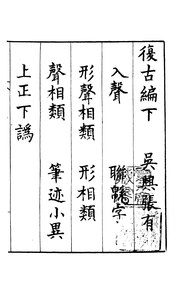 復古編下 吳興張有
入聲 聯緜字
形聲相類 形相類
聲相類 筆迹小異
上正下譌